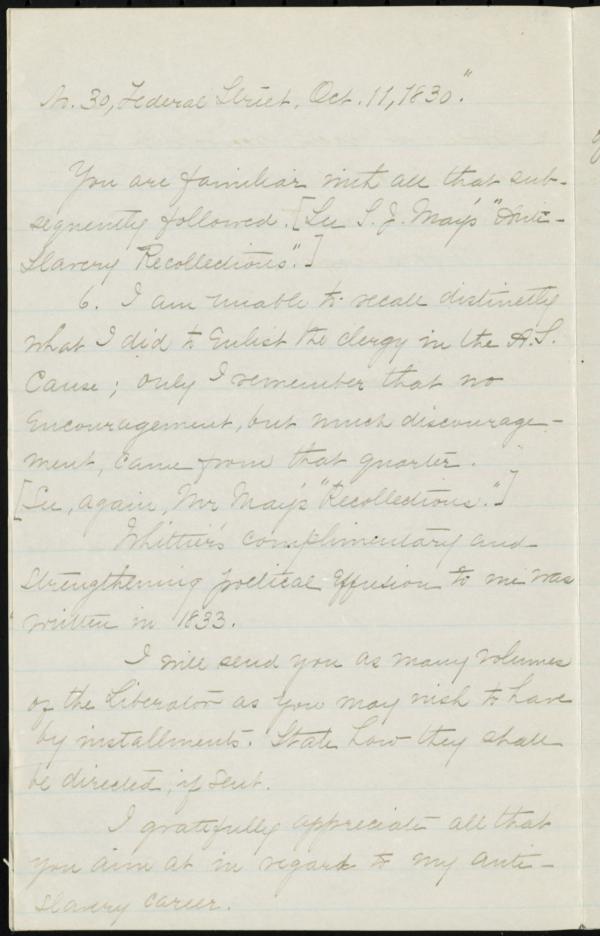 No. 30, Federal Street, Oct. 11, 1830."
You are familiar with all that sub-
sequently followed. [See S. J. May's "Anti-
Slavery Recollections".]
6. I am unable to recall distinctly
what I did to enlist the clergy in the A. S.
Cause; only I remember that no
encouragement, but much discourage-
ment, came from that quarter.
[See, again, Mr May's "Recollections."]
Whittier's complimentary and
strengthening poetical effusion to me was
written in 1833.
I will send you as many volumes
of the Liberator as you may wish to have
by installments. State how they shall
be directed, if sent.
I gratefully appreciate all that
you aim at in regard to my anti-
slavery career.